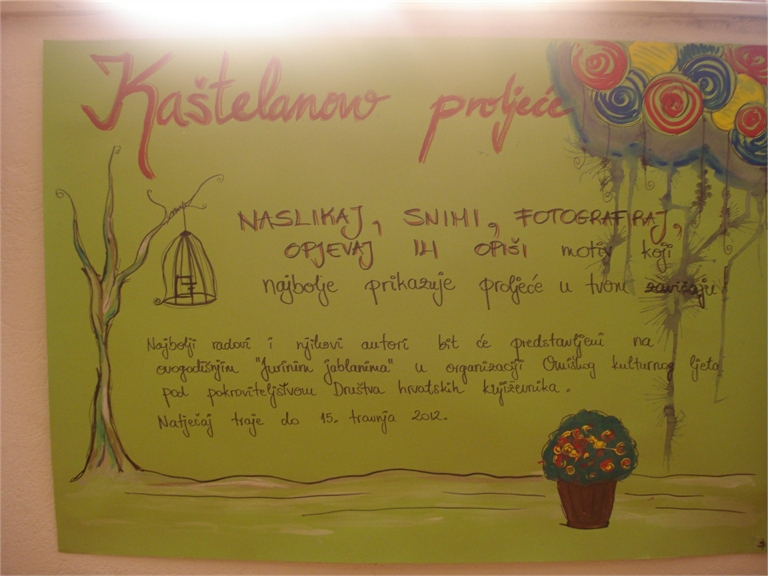 Kaštelanovo proljeće
NASLIKAJ, SNIMI, FOTOGRAFIRAJ,
OPJEVAJ ILI OPIŠI motiv koji
najbolje prikazuje proljeće u tvom zavičaju
Najbolji radovi i njihovi autori bit će predstavljeni na
ovogodišnjim "Jurinim jablanima" u organizaciji Omiškog kulturnog ljeta
pod pokroviteljstvom Društva hrvatskih književnika.
Natječaj traje do 15. travnja 2012.